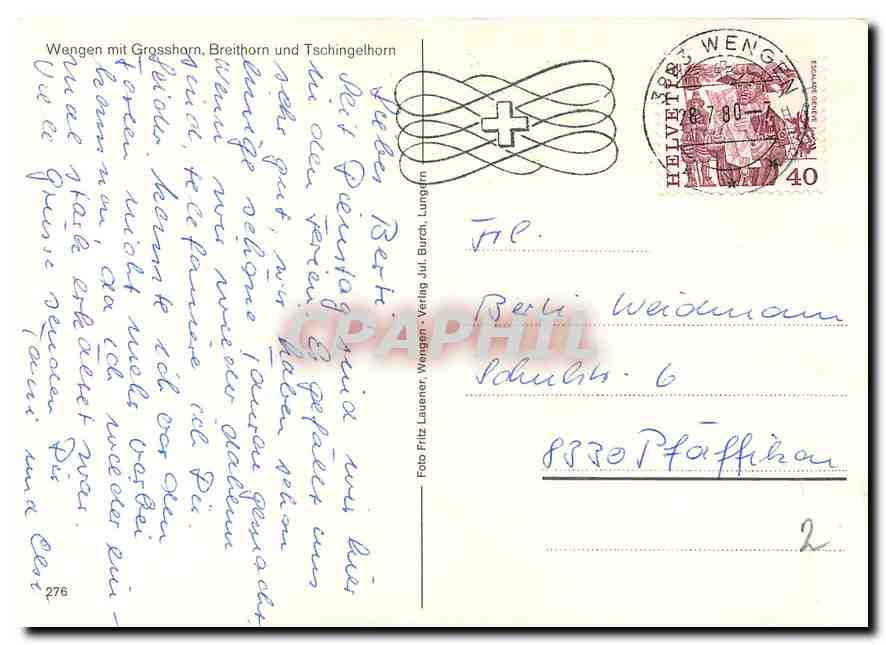 Wengen mit Grosshorn, Breithorn und Tschingelhorn
Liebes Berti!
Seit Dienstag sind wir hier
in den Ferien. Es gefällt uns
sehr gut, wir haben schon
einige schöne Touren gemacht.
Wenn wir wieder daheim
sind, telefoniere ich Dir.
Leider konnte ich vor den
Ferien nicht mehr vorbei
kommen, da ich wieder ein-
mal stark erkältet war.
Viele Grüsse senden Dir
und
276
Foto Fritz Lauener, Wengen - Verlag Jul. Burch, Lungern
3823 WENGEN
28.7.80-7
HELVETIA
ESCALADE GENÈVE
40
Frl.
Berti Weidmann
Schulstr. 6
8330 Pfäffikon
2
CPAPHIL